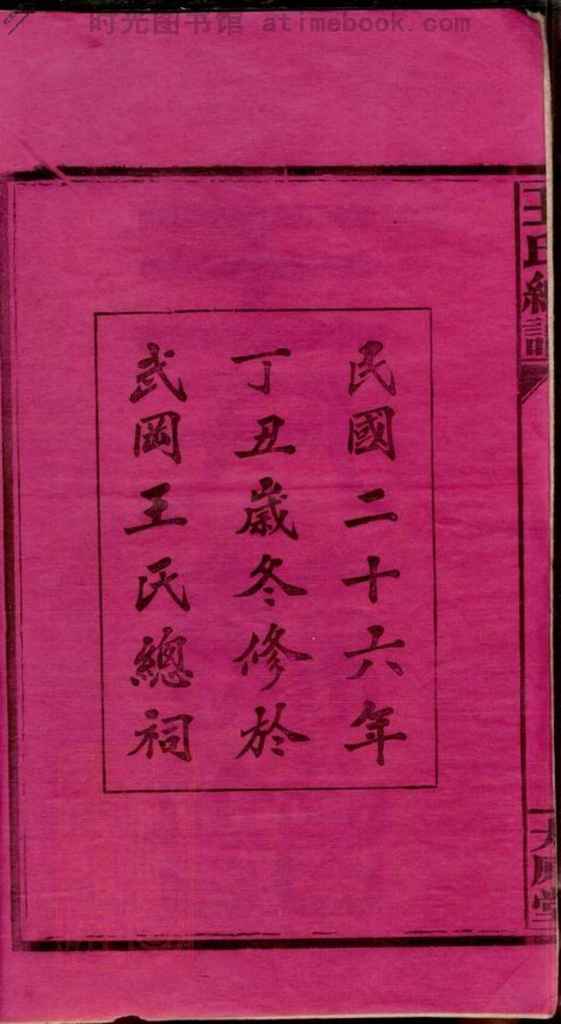 时光图书馆 atimebook.com
民國二十六年
丁丑歲冬修於
武岡王氏總祠
王氏總譜